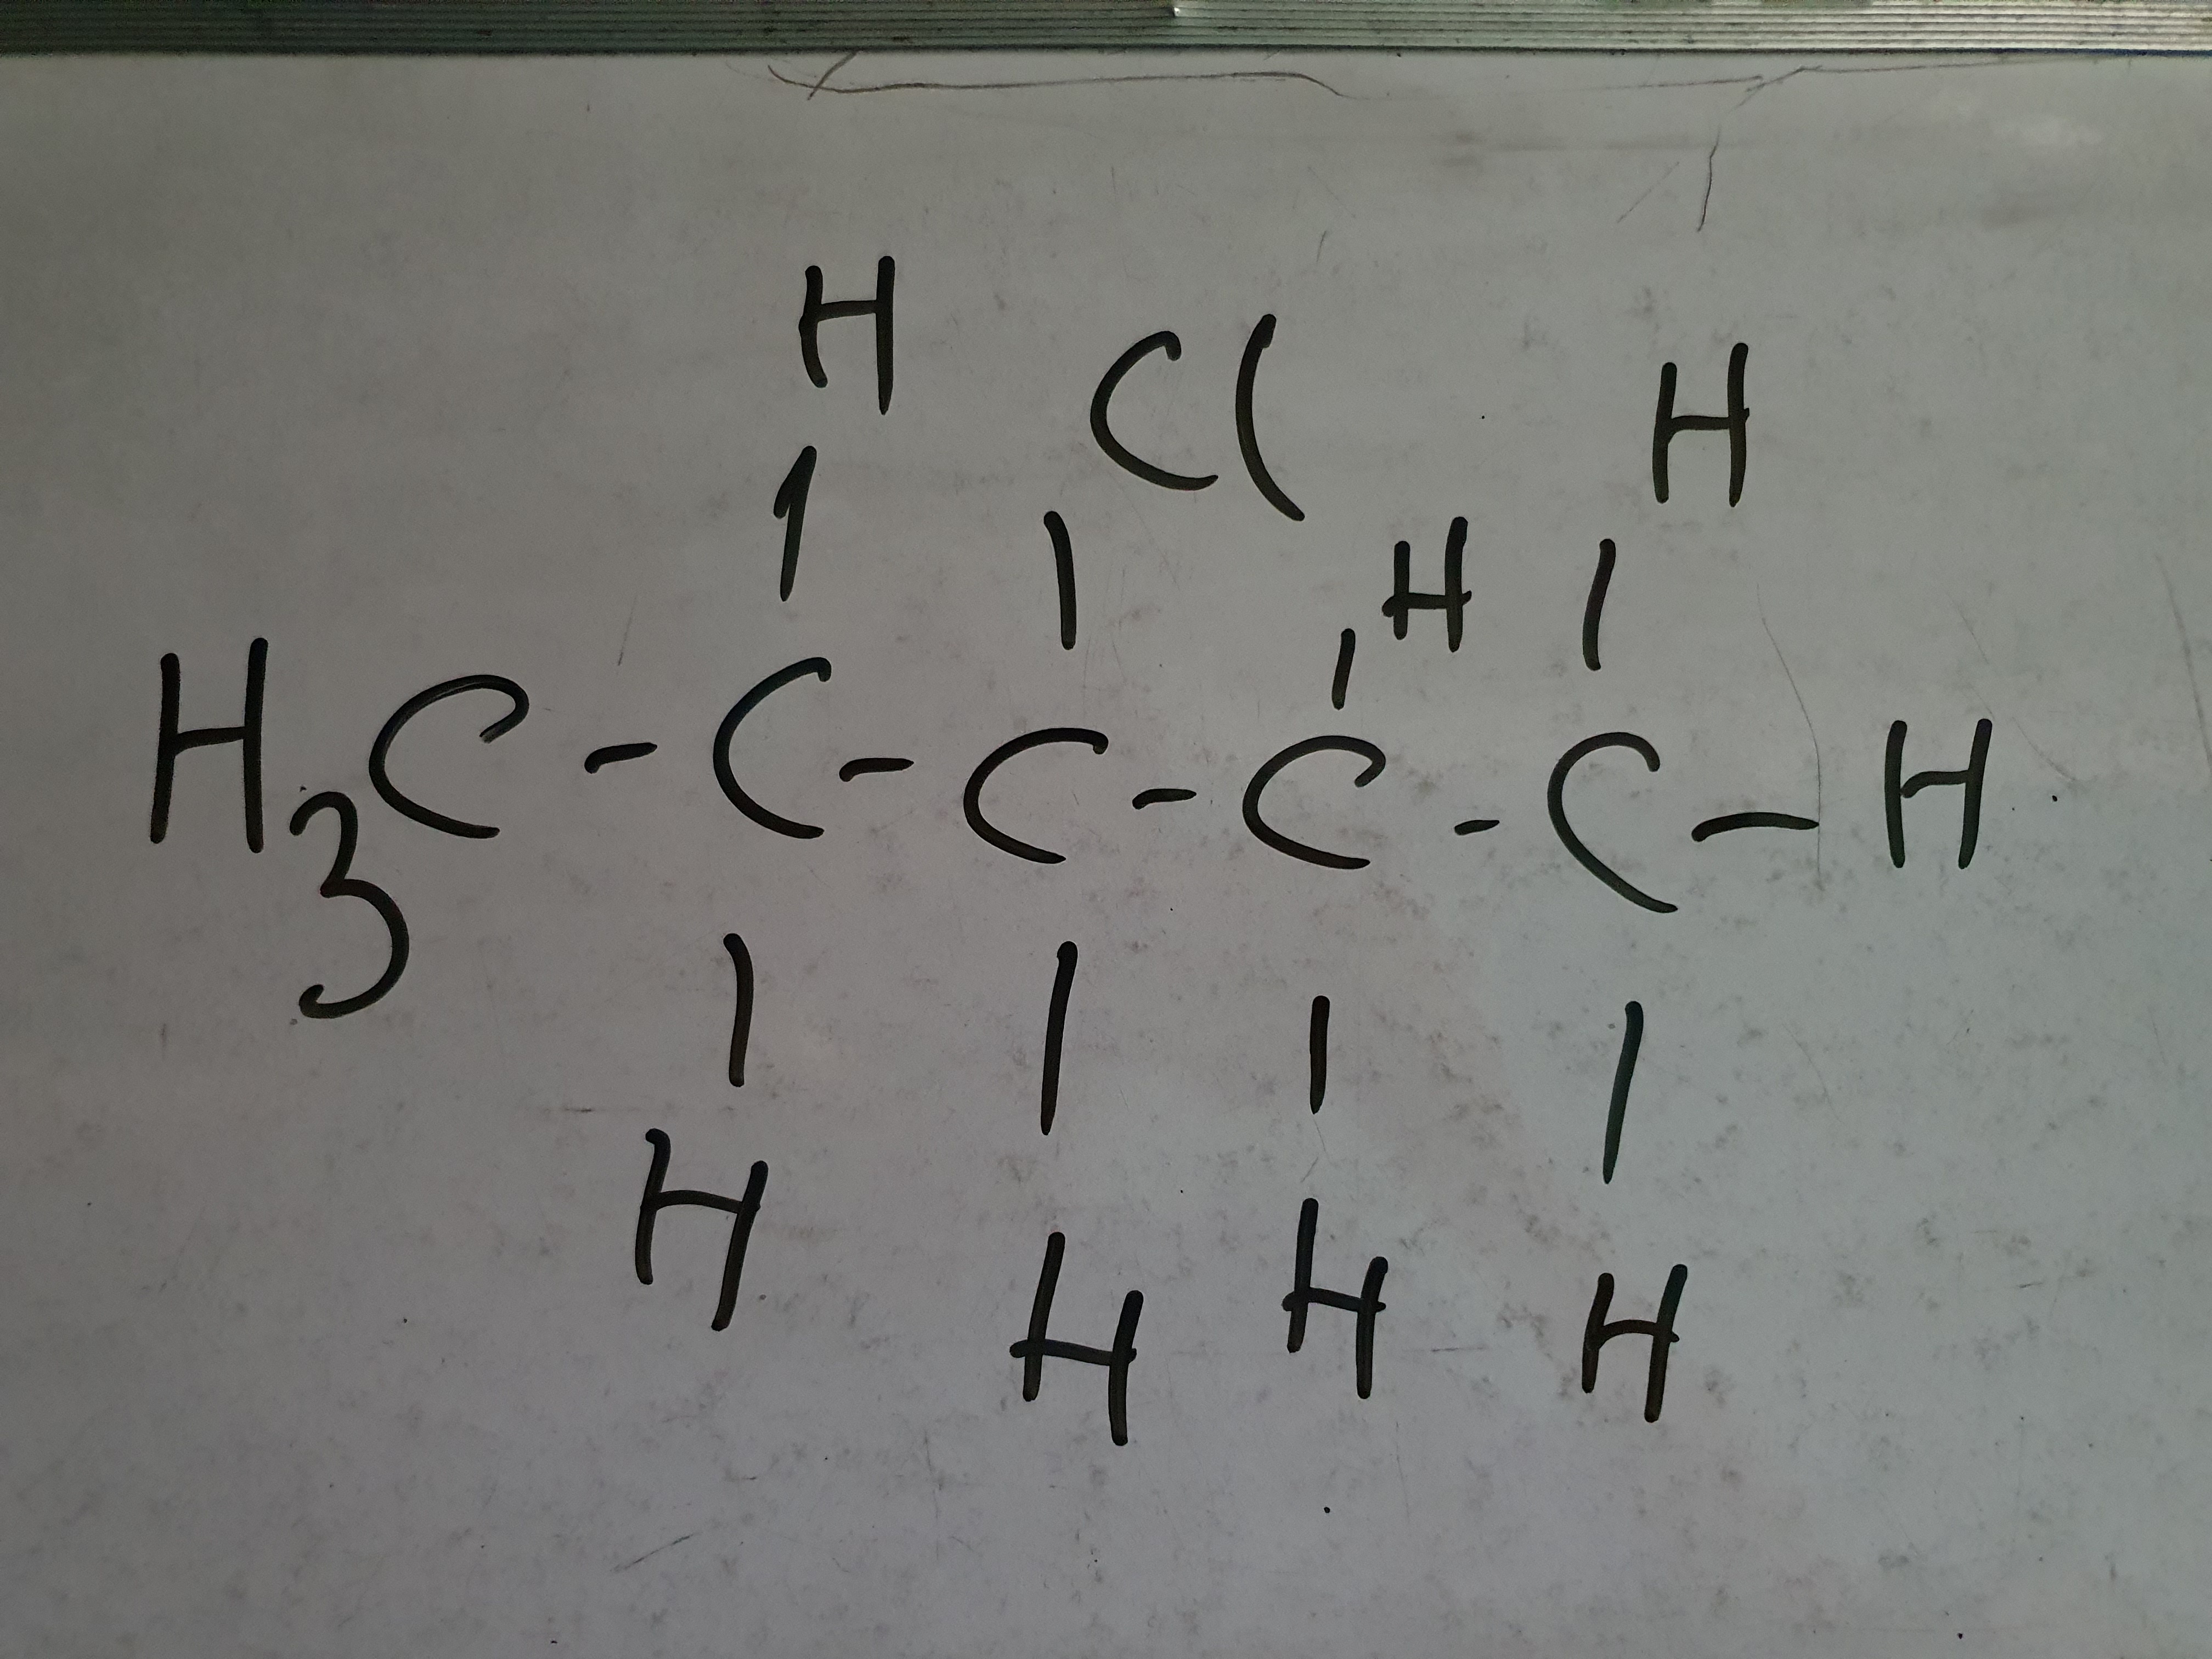 H Cl H
H
H₃C-C-C-C-C-H
H H H H